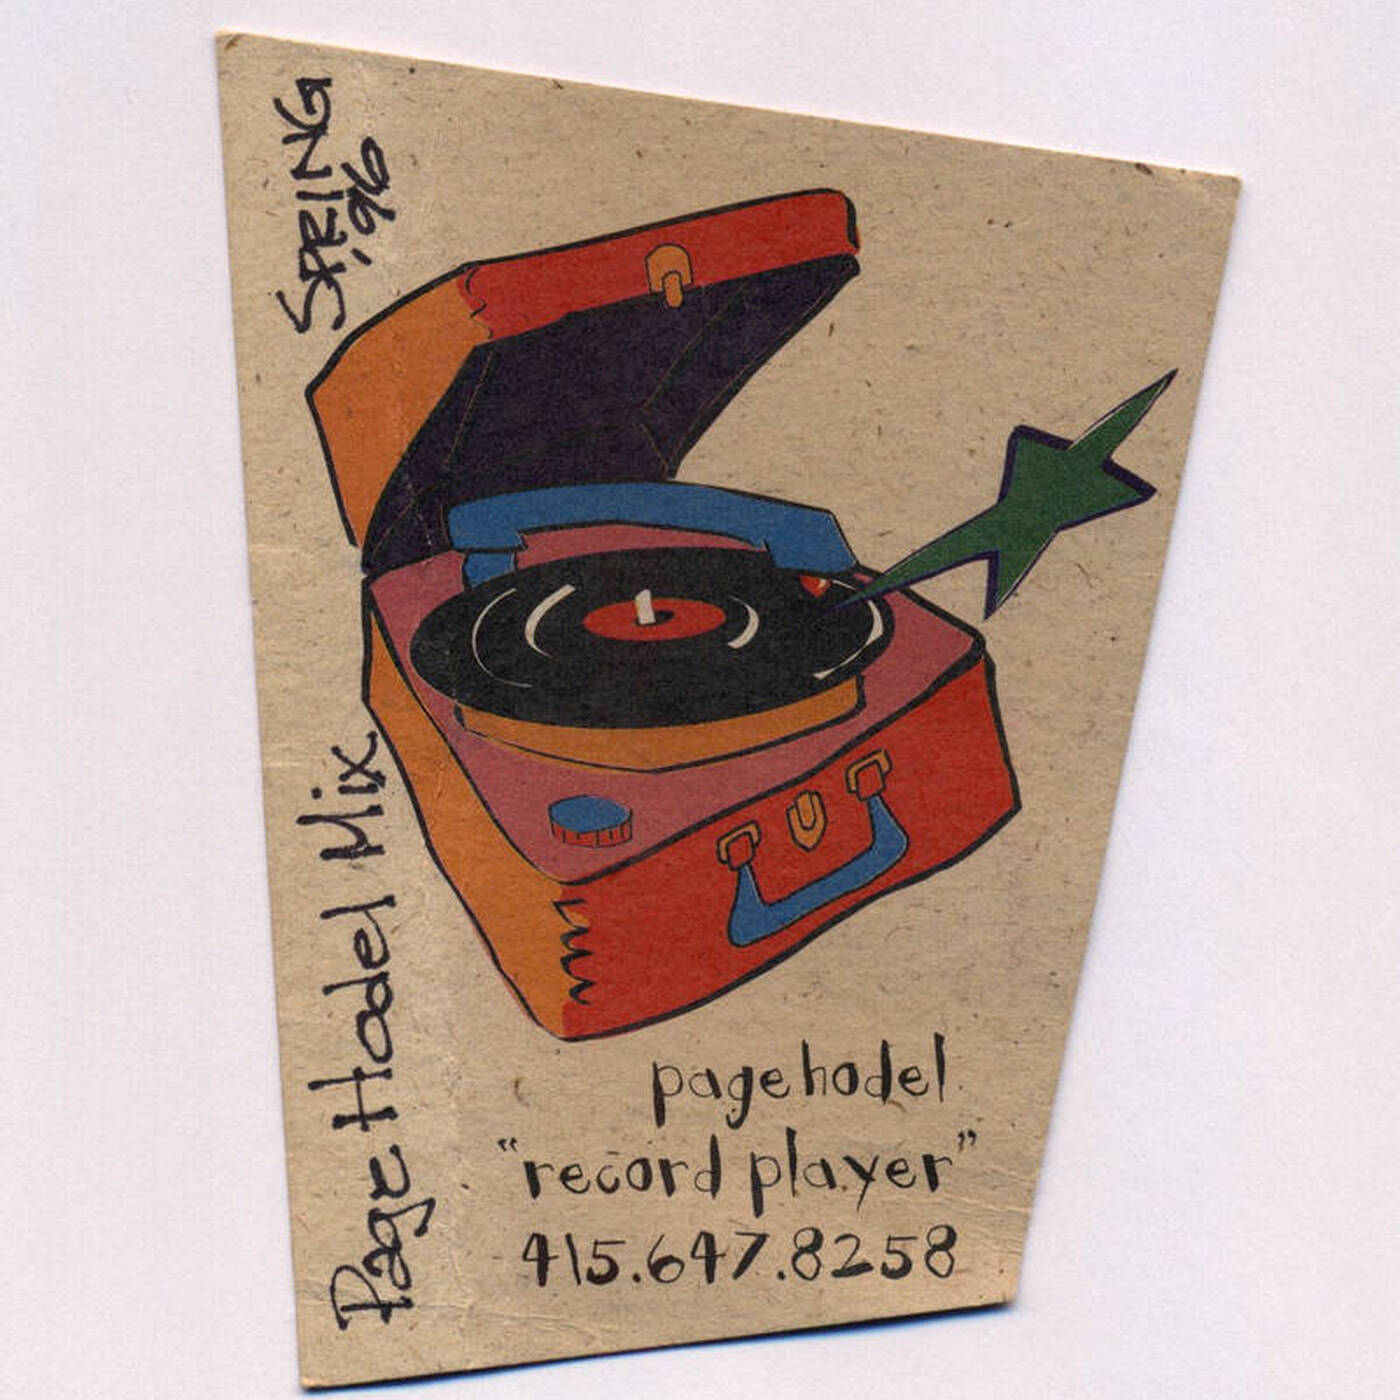 SPRING
'96
Page Hodel Mix
page hodel
"record player"
415.647.8258